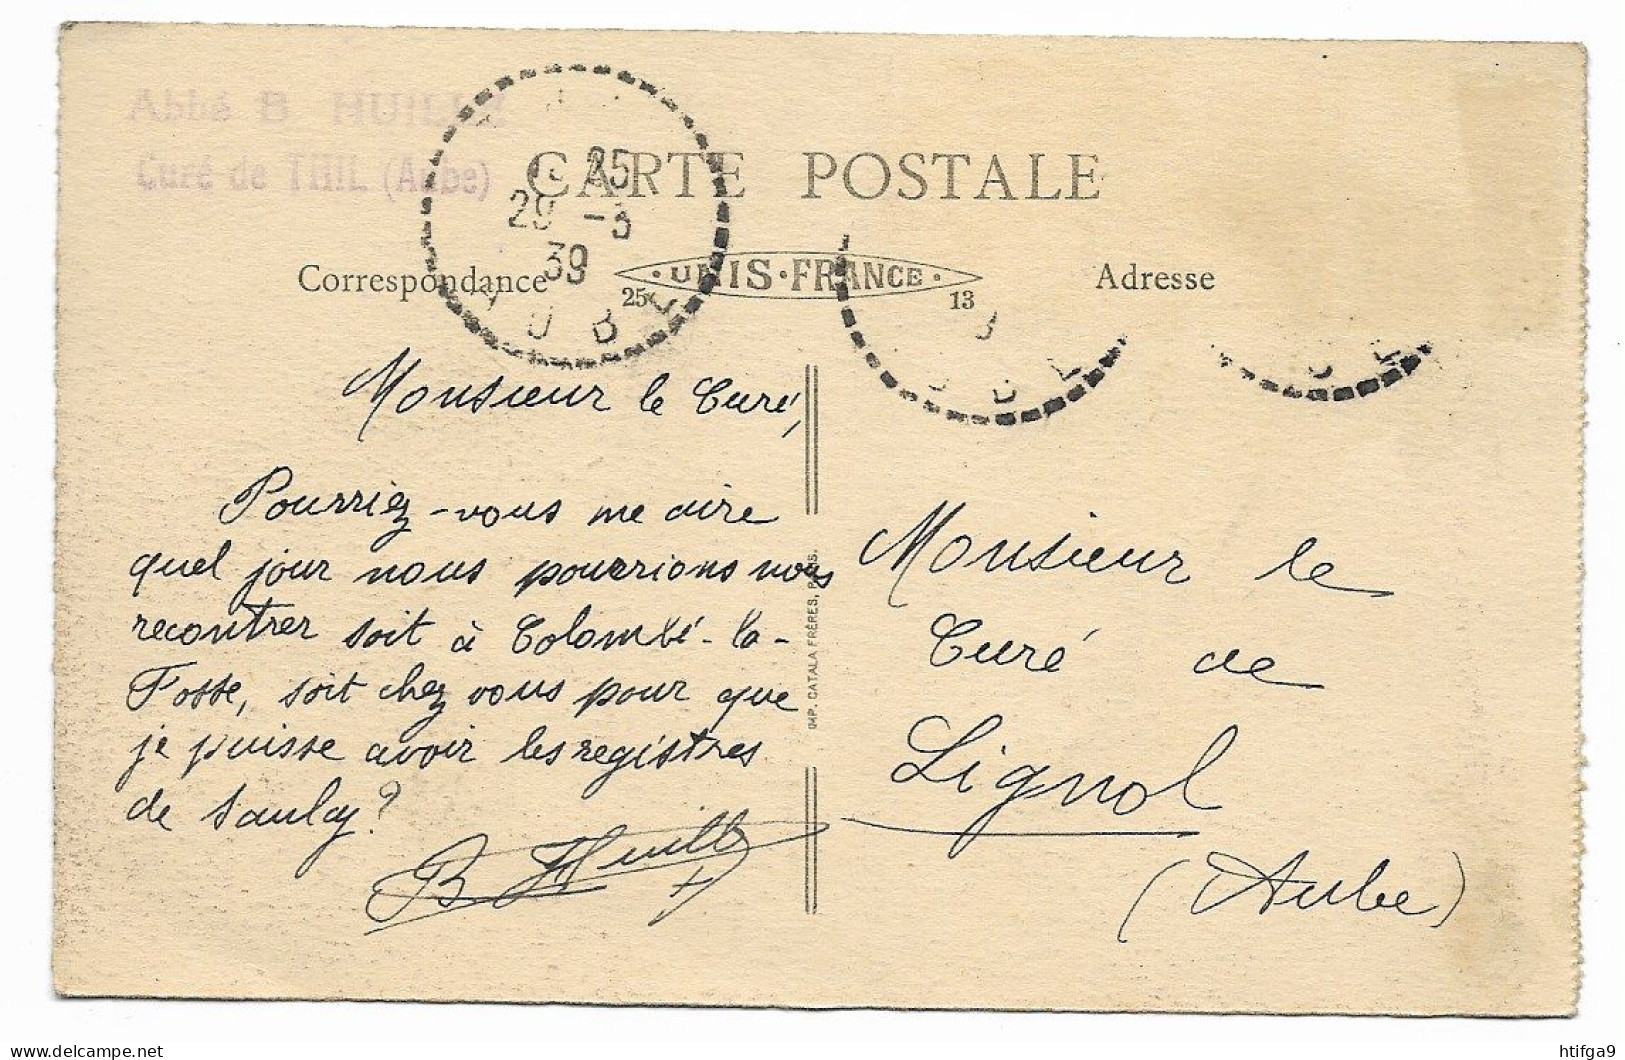 Abbé B. HUILLY
Curé de THIL (Aube)
25
29 -3
39
AUBE
CARTE POSTALE
Correspondance
UNIS-FRANCE
25
13
Adresse
Monsieur le Curé,
Pourriez-vous me dire
quel jour nous pourrions nous
recontrer soit à Colombé-la-
Fosse, soit chez vous pour que
je puisse avoir les registres
de Saulcy?
IMP. CATALA FRÈRES, PARIS.
Monsieur le
Curé de
Lignol
(Aube)
htifga9